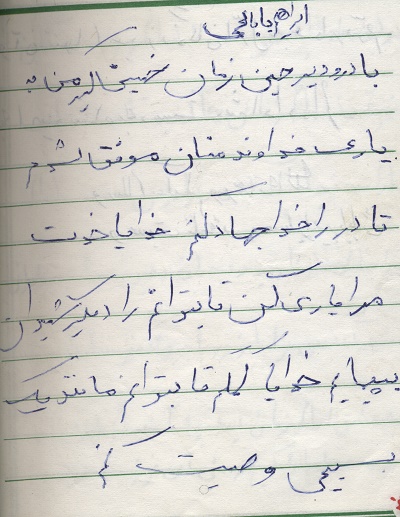 ابراهیم بابائی
با درود بر حسین زمان خمینی اگر من به
یاری خداوند منان موفق بشوم
تا در راه خدا جهاد کنم خدایا خودت
مرا یاری کن تا بتوانم راه دیگر شهیدان
بپیمایم خدایا کمکم تا بتوانم مانند یک
بسیجی وصیت کنم